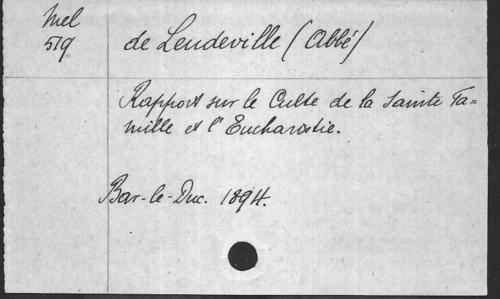 Mel
519
de Leudeville (Abbé)
Rapport sur le Culte de la Sainte Fa=
mille et l'Eucharistie.
Bar-le-Duc. 1894.